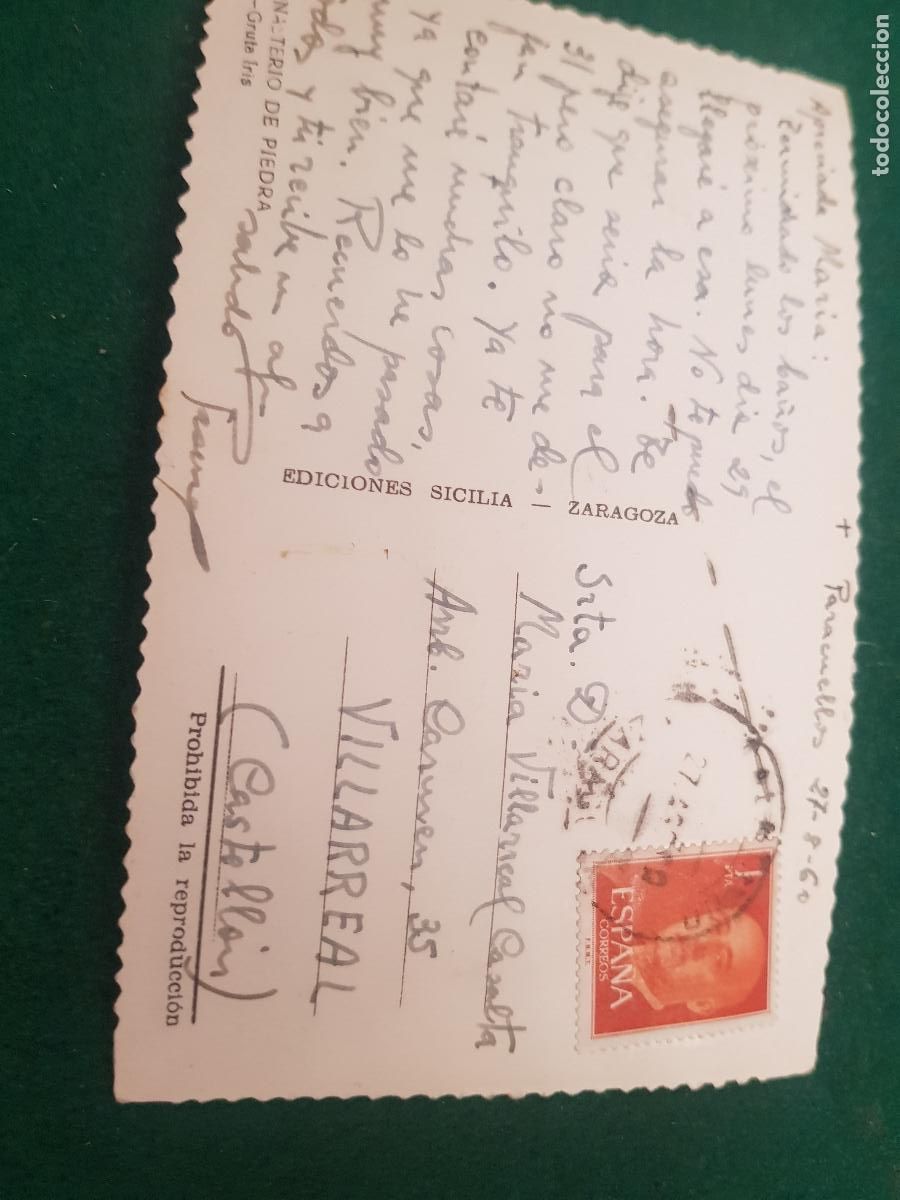 + Paracuellos 27-8-60
Apreciada Maria:
Terminado los baños, el
próximo lunes dia 29
llegaré a esa. No te puedo
asegurar la hora. Te
dije que seria para el
31 pero claro no me de-
jan tranquilo. Ya te
contaré muchas cosas,
ya que me lo he pasado
muy bien. Recuerdos a
todos y tú recibe un af.
saludo
NASTERIO DE PIEDRA
-Gruta Iris
EDICIONES SICILIA — ZARAGOZA
Srta. D
Maria Villarreal Casalta
Arrb. Carmen, 35
VILLARREAL
(Castellón)
Prohibida la reproducción
1 PTA
ESPAÑA
CORREOS
F.N.M.T.
27
todocoleccion